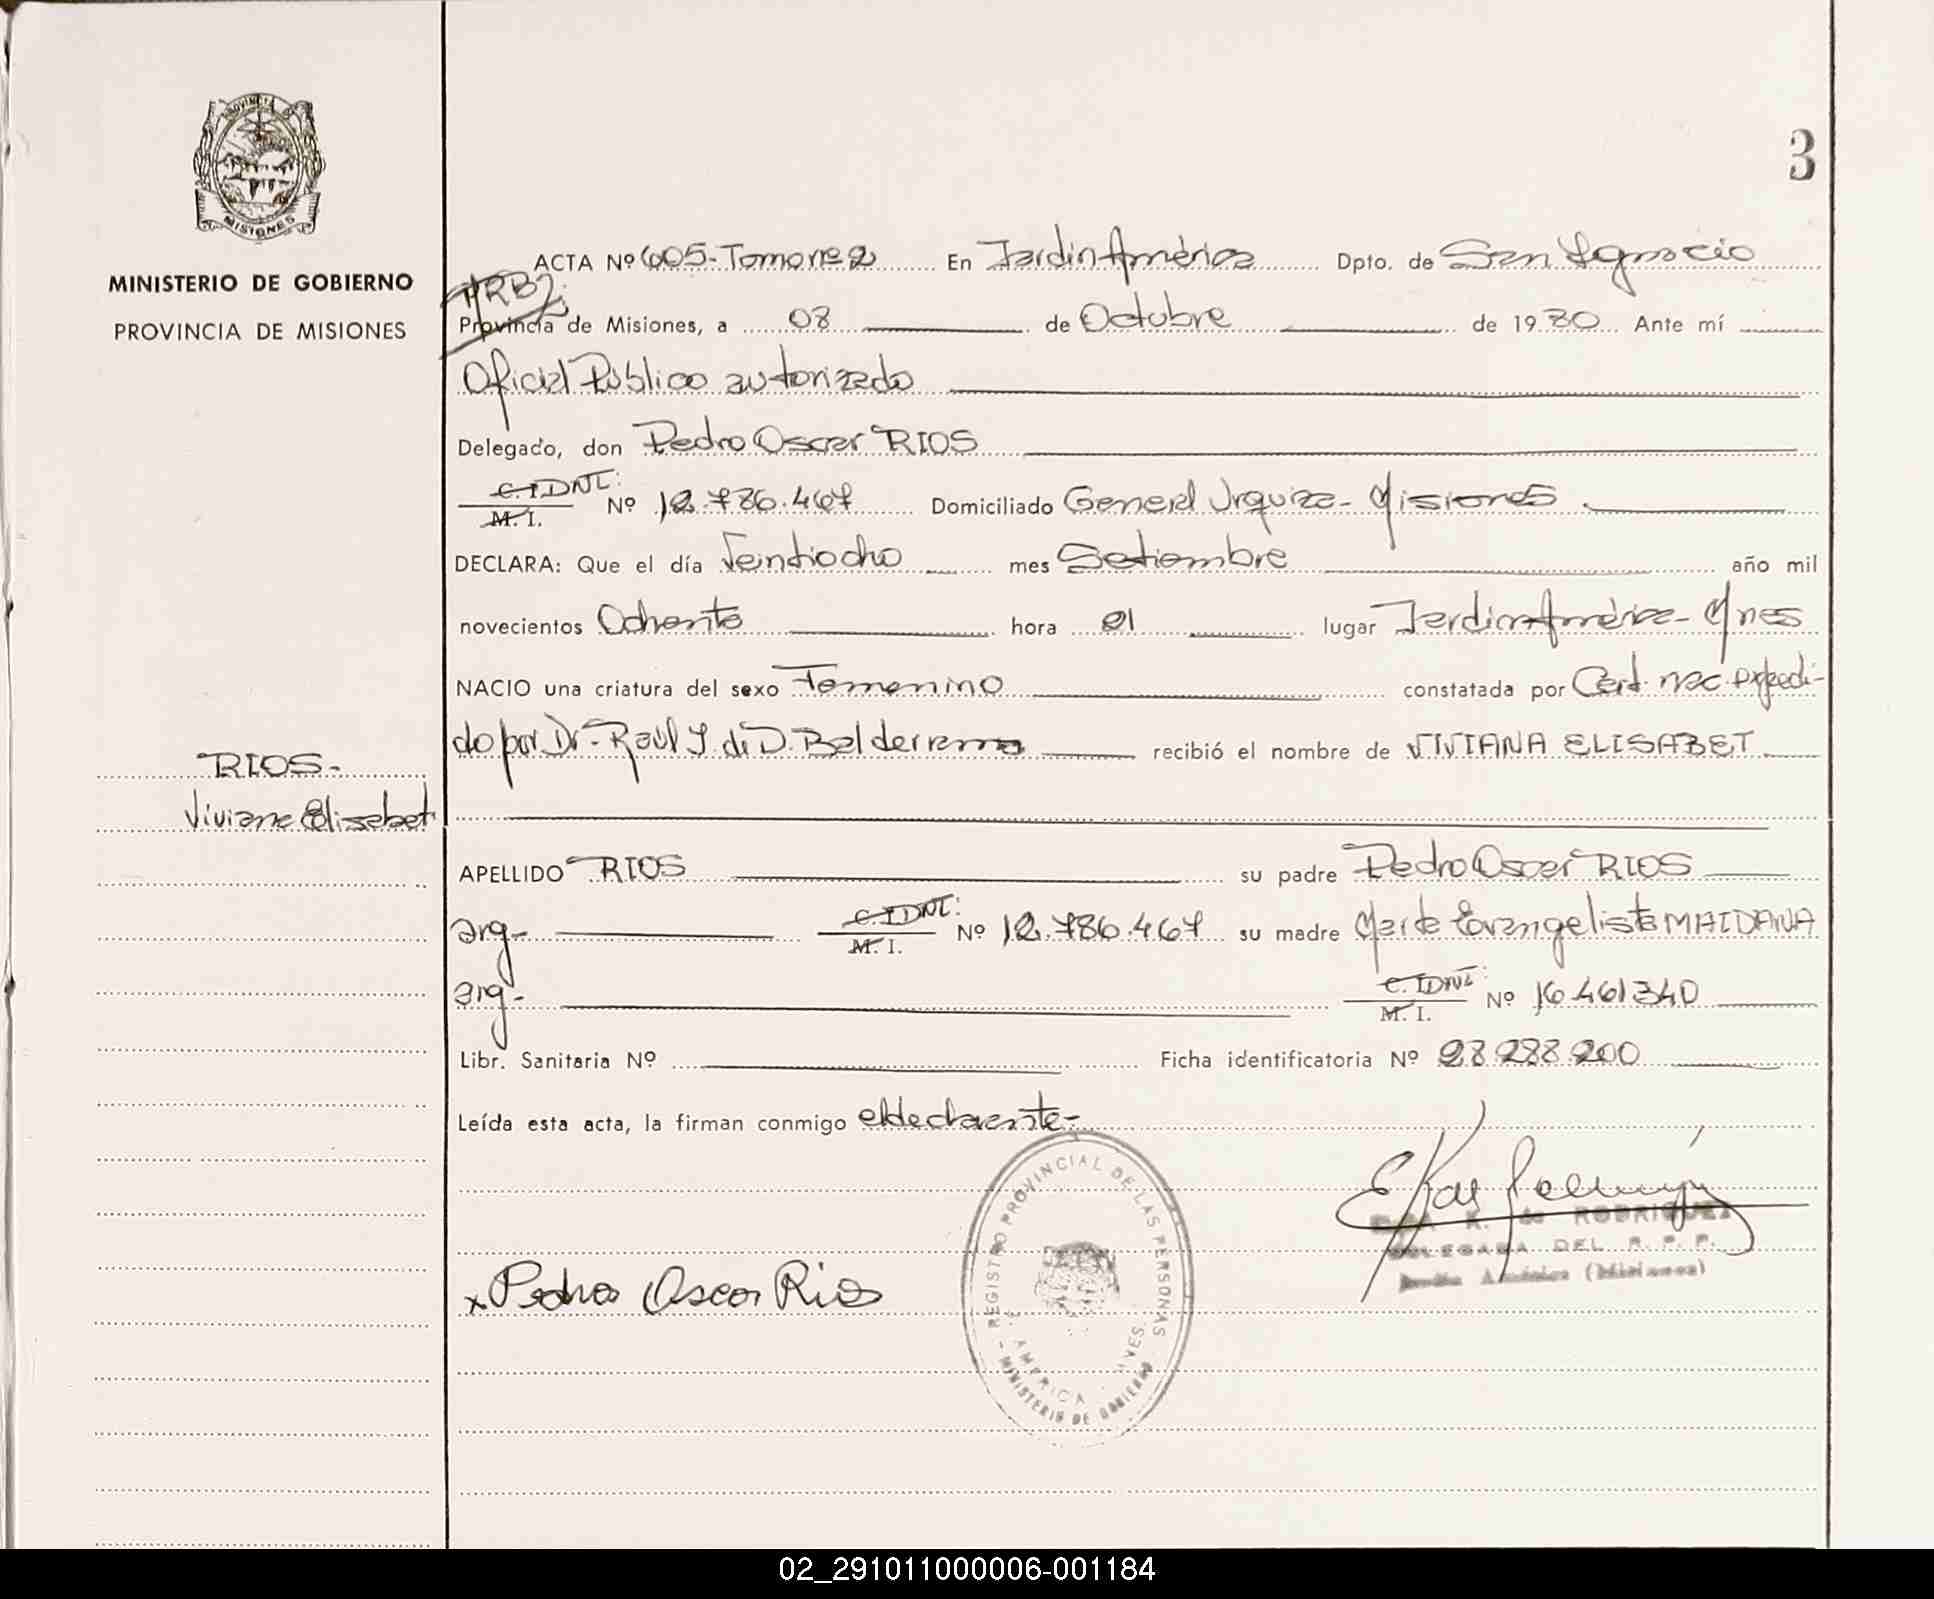 PROVINCIA DE
MISIONES
MINISTERIO DE GOBIERNO
PROVINCIA DE MISIONES
3
ACTA Nº 605-Tomo nº 2 En Jardin América Dpto. de San Ignacio
Provincia de Misiones, a 08 de Octubre de 1980 Ante mí
Oficial Público autorizado
Delegado, don Pedro Oscar RIOS
C. I DNI: M. I. Nº 12.786.467 Domiciliado General Urquiza- Misiones
DECLARA: Que el día Veintiocho mes Setiembre año mil
novecientos Ochenta hora 21 lugar Jardin América- Mnes
NACIO una criatura del sexo Femenino constatada por Cert. nac expedi-
do por Dr. Raúl J. di D. Balderrama recibió el nombre de VIVIANA ELISABET
RIOS-
Viviana Elisabet
APELLIDO RIOS su padre Pedro Oscar RIOS
arg- C. I DNI: M. I. Nº 12.786.467 su madre Marta Evangelista MAIDANA
arg- C. I DNI: M. I. Nº 16.461340
Libr. Sanitaria Nº Ficha identificatoria Nº 28.288.200
Leída esta acta, la firman conmigo el declarante-
REGISTRO PROVINCIAL DE LAS PERSONAS
AMERICA
MINISTERIO DE GOBIERNO
K. de RODRIGUEZ
DELEGADA DEL R. P. P.
América (Misiones)
x Pedro Oscar Rios
02_291011000006-001184